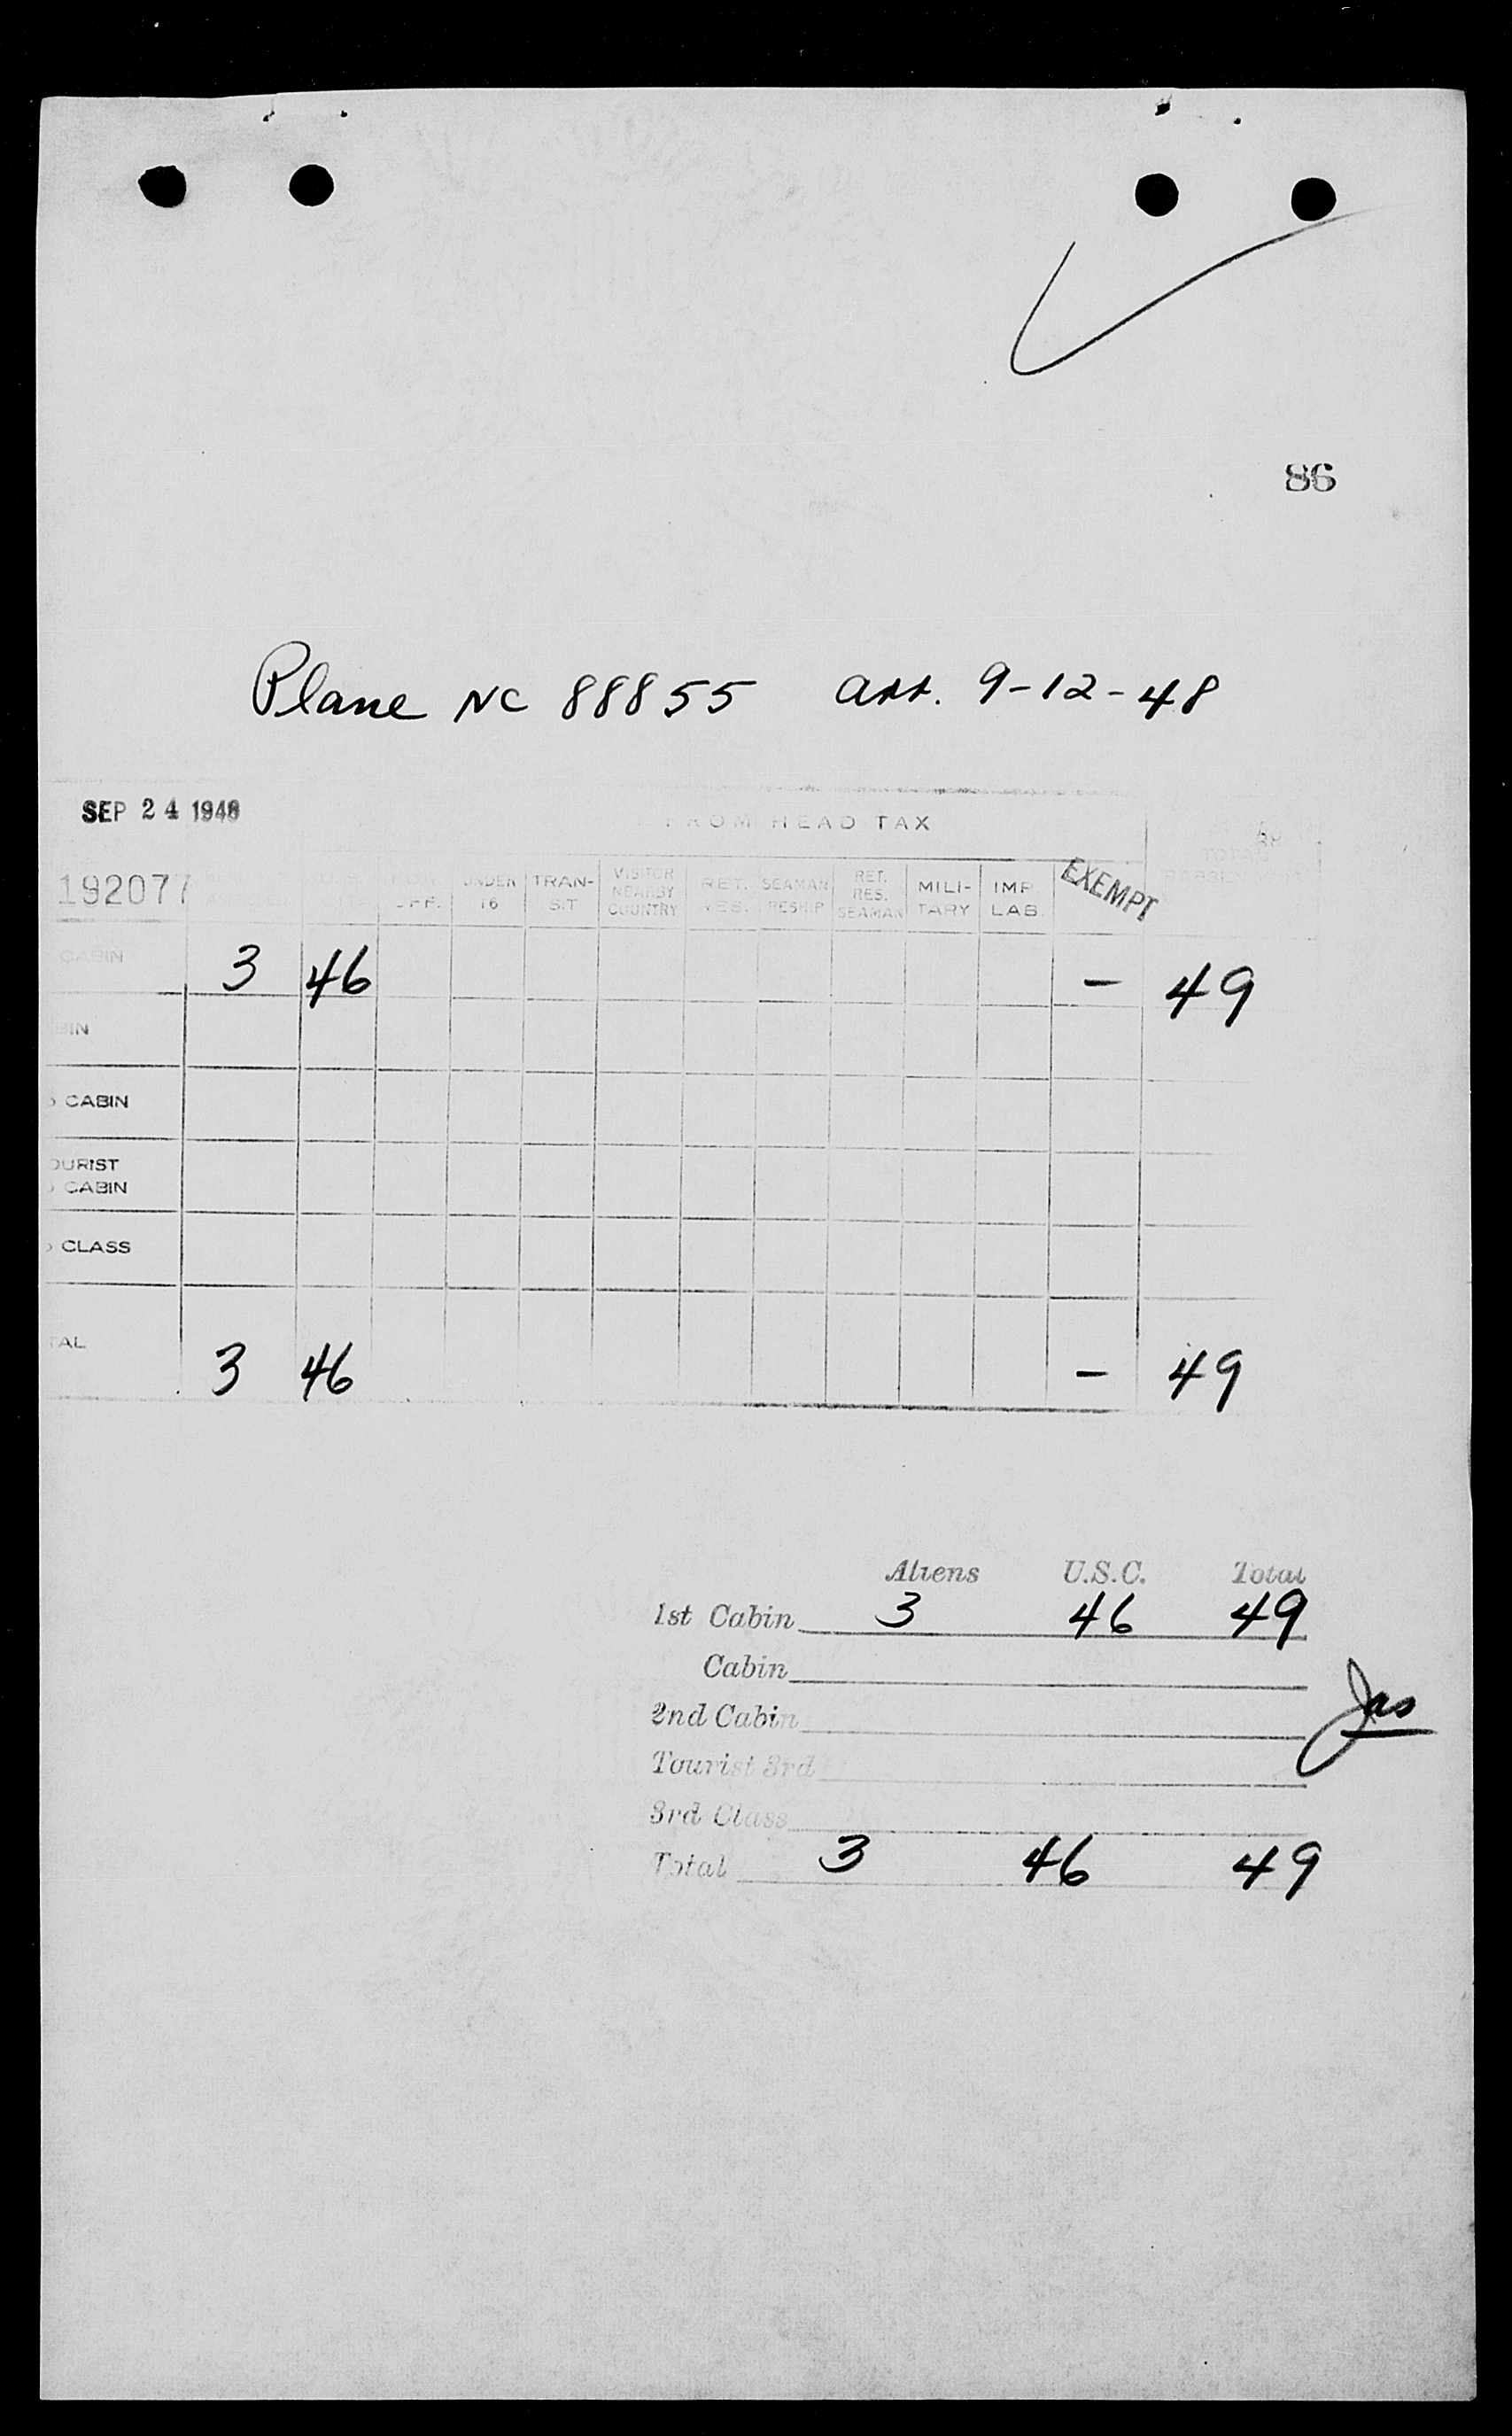 86
Plane NC 88855 arr. 9-12-48
SEP 24 1948
FROM HEAD TAX
192077
UNDER 16 TRAN-SIT VISITOR NEARBY COUNTRY RET. RES. SEAMAN RESHIP RET. RES. SEAMAN MILI-TARY IMP. LAB. EXEMPT
CABIN 3 46 - 49
BIN
CABIN
OURIST
CABIN
CLASS
TAL 3 46 - 49
Aliens U.S.C. Total
1st Cabin 3 46 49
Cabin
2nd Cabin
Tourist 3rd
3rd Class
Total 3 46 49